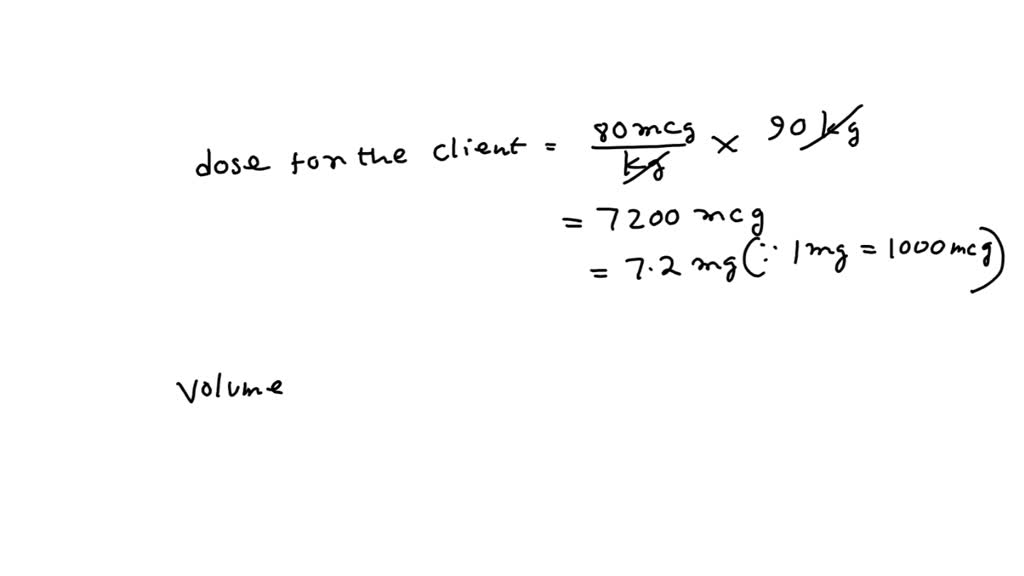 dose for the client = 80 mcg / kg × 90 kg
= 7200 mcg
= 7.2 mg (∵ 1 mg = 1000 mcg)
volume